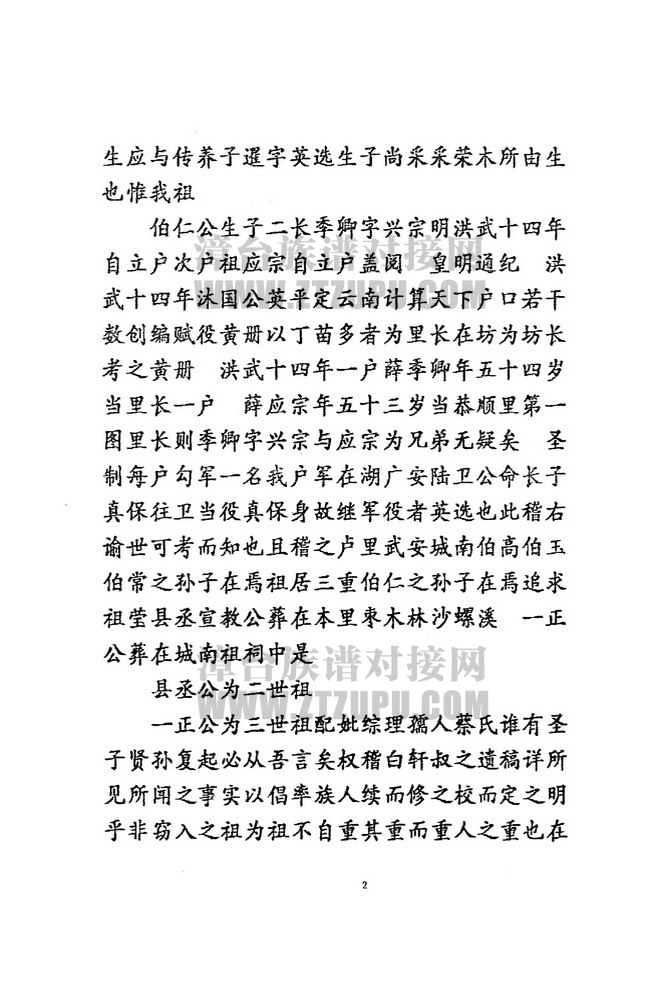 生应与传养子暹字英选生子尚采采荣木所由生
也惟我祖
伯仁公生子二长季卿字兴宗明洪武十四年
自立户次户祖应宗自立户盖阅　皇明通纪　洪
武十四年沐国公英平定云南计算天下户口若干
数创编赋役黄册以丁苗多者为里长在坊为坊长
考之黄册　洪武十四年一户薛季卿年五十四岁
当里长一户　薛应宗年五十三岁当恭顺里第一
图里长则季卿字兴宗与应宗为兄弟无疑矣　圣
制每户勾军一名我户军在湖广安陆卫公命长子
真保往卫当役真保身故继军役者英选也此稽右
谕世可考而知也且稽之卢里武安城南伯高伯玉
伯常之孙子在焉祖居三重伯仁之孙子在焉追求
祖莹县丞宣教公葬在本里枣木林沙螺溪　一正
公葬在城南祖祠中是
县丞公为二世祖
一正公为三世祖配妣综理孺人蔡氏谁有圣
子贤孙复起必从吾言矣权稽白轩叔之遗稿详所
见所闻之事实以倡率族人续而修之校而定之明
乎非窃入之祖为祖不自重其重而重人之重也在
2
漳台族谱对接网
WWW.ZTZUPU.COM
漳台族谱对接网
WWW.ZTZUPU.COM